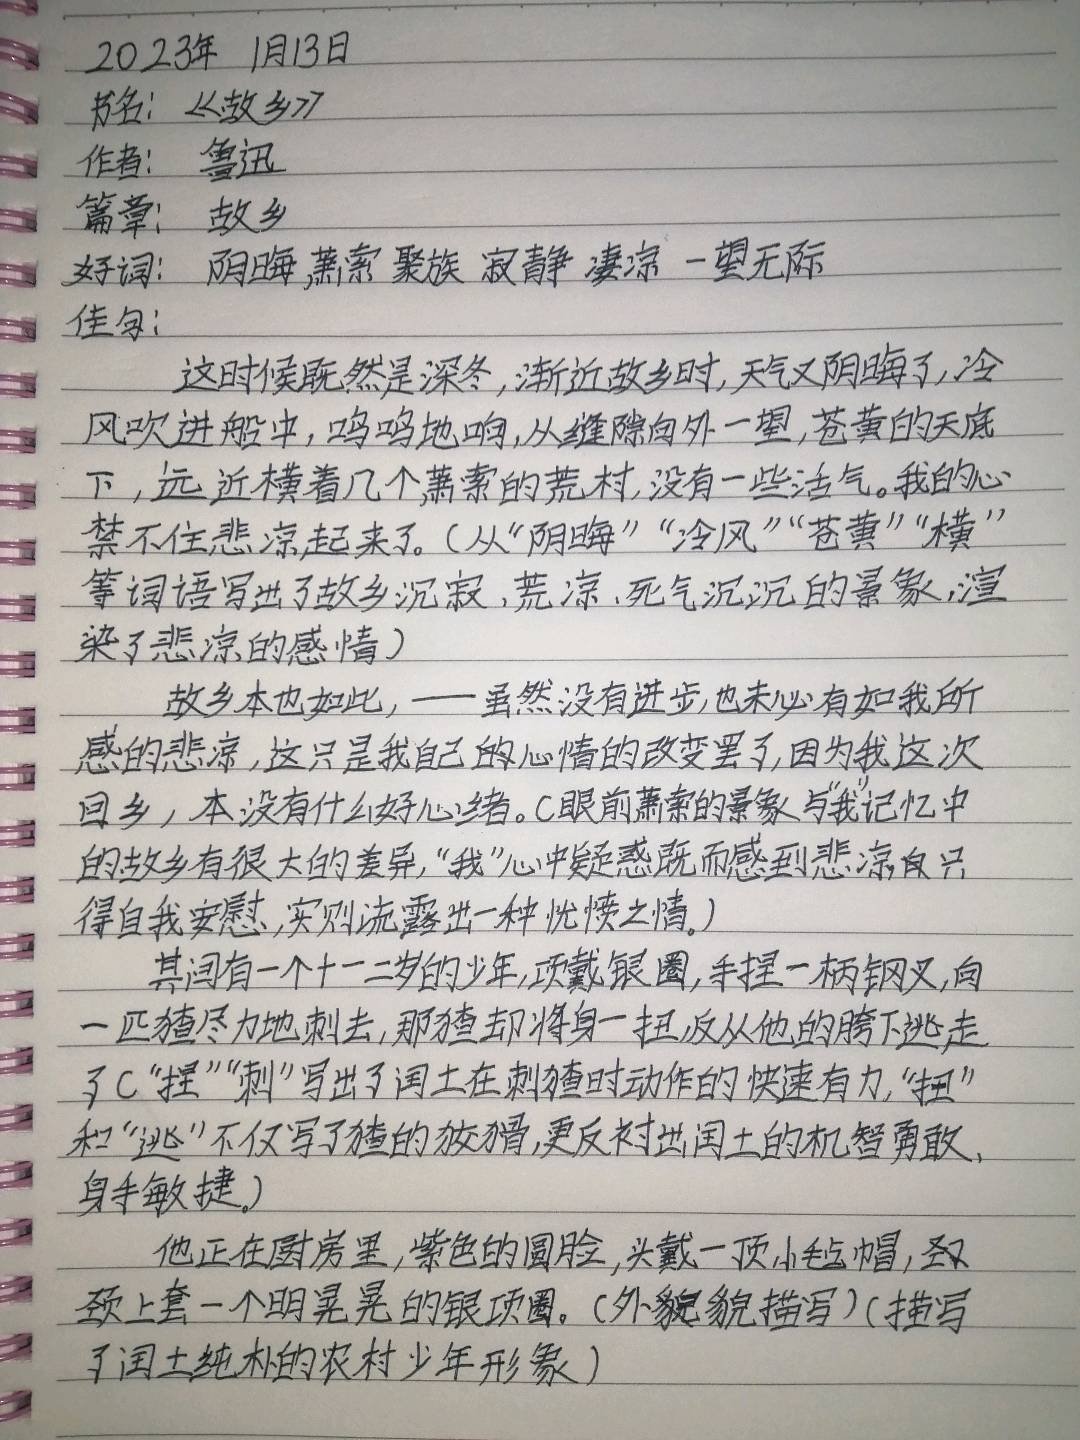 2023年 1月13日
书名：《故乡》
作者： 鲁迅
篇章： 故乡
好词： 阴晦,萧索 聚族 寂静 凄凉 一望无际
佳句：
这时候既然是深冬,渐近故乡时,天气又阴晦了,冷
风吹进船中,呜呜地响,从缝隙向外一望,苍黄的天底
下,远近横着几个萧索的荒村,没有一些活气。我的心
禁不住悲凉起来了。(从“阴晦”“冷风”“苍黄”“横”
等词语写出了故乡沉寂、荒凉、死气沉沉的景象,渲
染了悲凉的感情)
故乡本也如此,——虽然没有进步,也未必有如我所
感的悲凉,这只是我自己的心情的改变罢了,因为我这次
回乡,本没有什么好心绪。(眼前萧索的景象与“我”记忆中
的故乡有很大的差异,“我”心中疑惑既而感到悲凉自只
得自我安慰,实则流露出一种忧愤之情。)
其间有一个十一二岁的少年,项戴银圈,手捏一柄钢叉,向
一匹猹尽力地刺去,那猹却将身一扭,反从他的胯下逃走
了(“捏”“刺”写出了闰土在刺猹时动作的快速有力,“扭”
和“逃”不仅写了猹的狡猾,更反衬出闰土的机智勇敢、
身手敏捷。)
他正在厨房里,紫色的圆脸,头戴一顶小毡帽,
颈上套一个明晃晃的银项圈。(外貌貌描写)(描写
了闰土纯朴的农村少年形象)